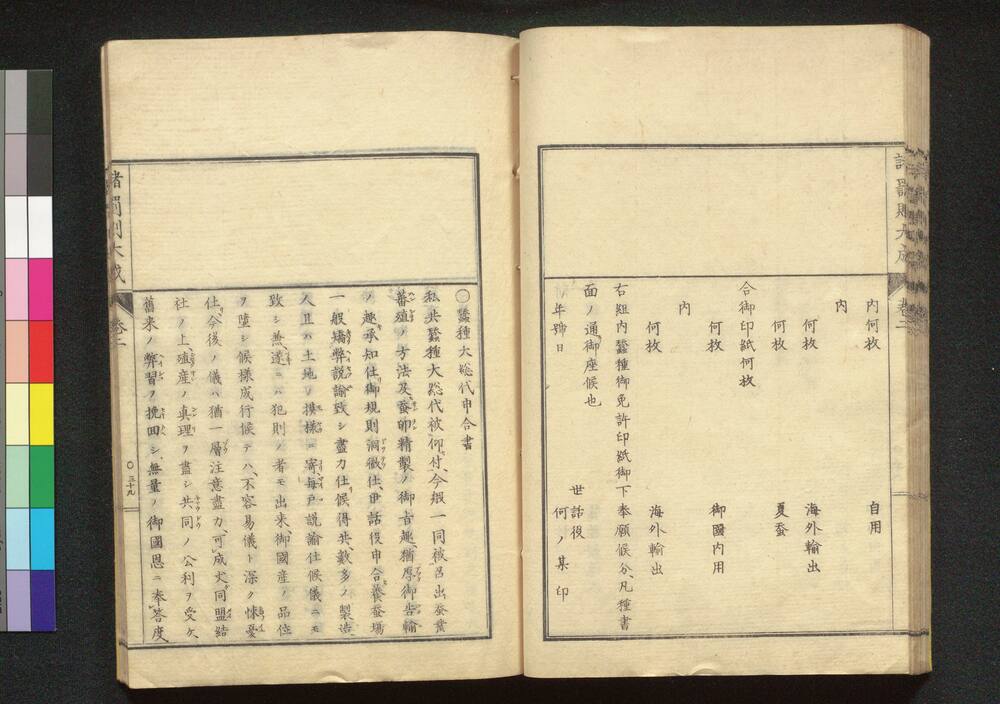 諸罰則大成 卷二
内何枚 自用
内
何枚 海外輸出
何枚 夏蚕
合御印紙何枚
何枚 御國内用
内
何枚 海外輸出
右組内蠶種御免許印紙御下奉願候分、凡種書
面ノ通御座候也
年號日 世話役 何ノ某印
〇蠶種大総代申合書
私共蠶種大総代被仰付、今般一同被召出蚕業
蕃殖ノ方法及、蚕卵精製ノ御旨趣、猶厚御告諭
ノ趣承知仕、御規則洞徹仕、世話役申合、養蚕場
一般矯弊説諭致シ盡力仕候得共、数多ノ製造
人且ハ土地ノ摸様ニ寄、毎戸説諭仕候儀ニモ
致シ無違ニハ犯則ノ者モ出来、御國産ノ品位
ヲ墮シ候様成行候テハ、不容易儀ト深ク悚憂
仕、今後ノ儀ハ猶一層注意盡力、可成丈同盟結
社ノ上、殖産ノ真理ヲ盡シ共同ノ公利ヲ受ケ、
舊来ノ弊習ヲ挽回シ、無量ノ御國恩ニ奉答度、
諸罰則大成 卷二 〇三十九